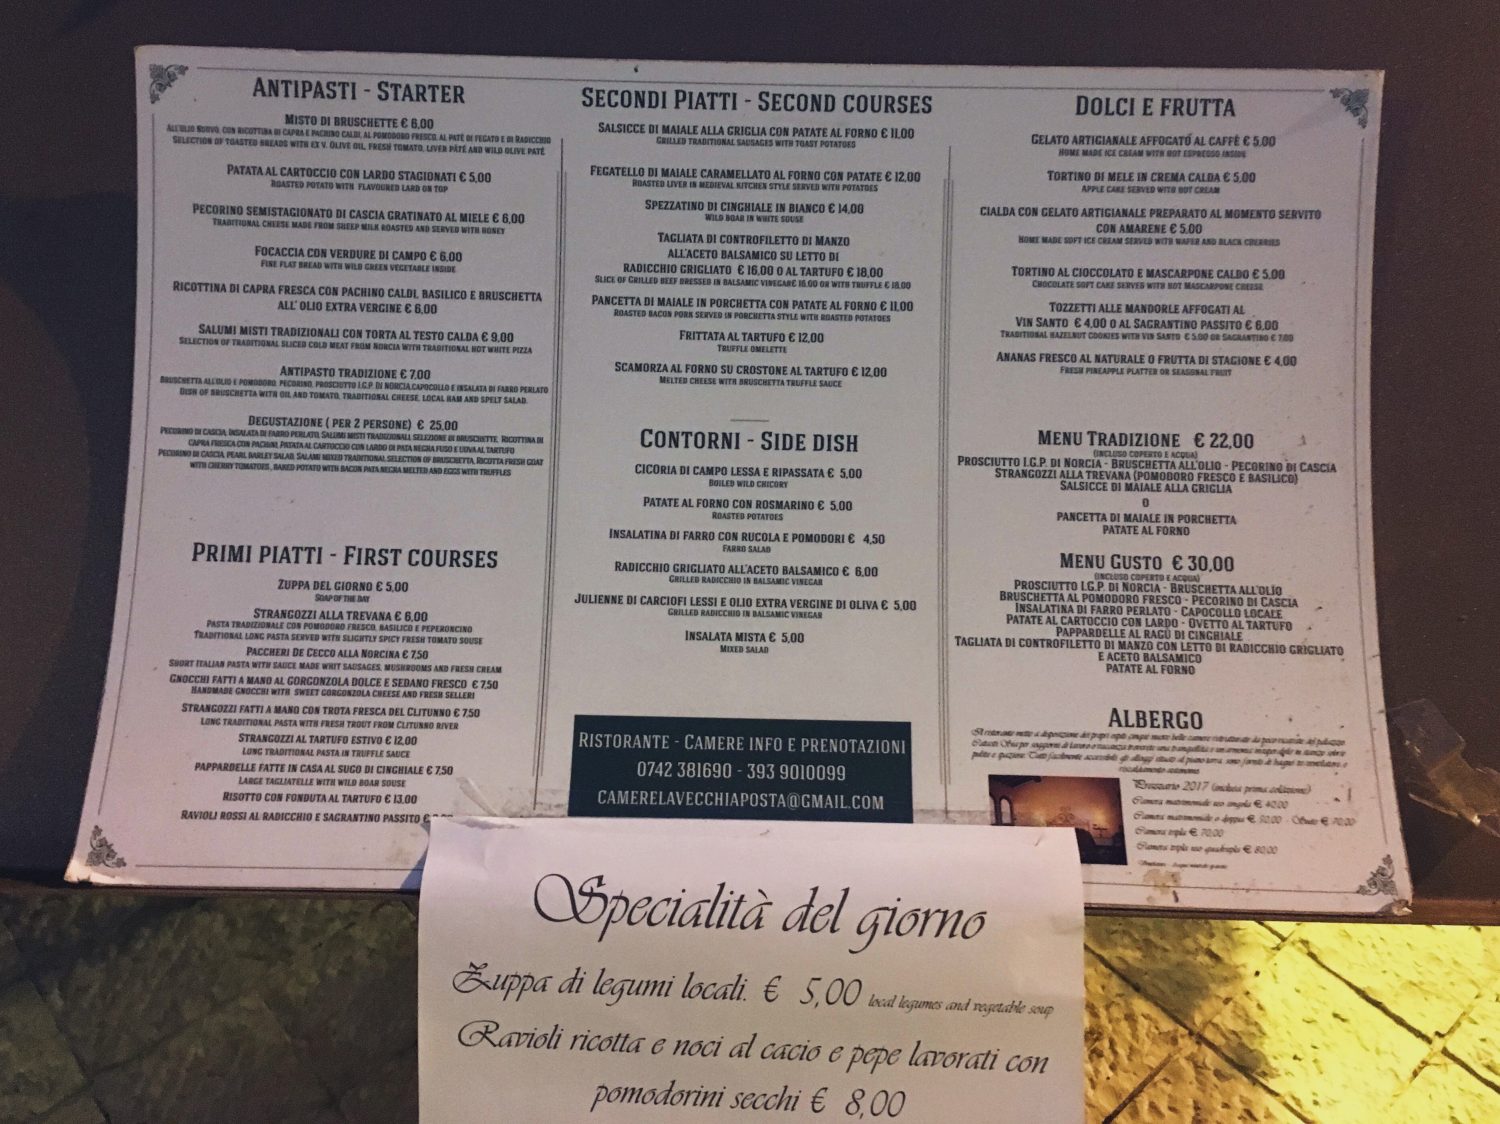 ANTIPASTI - STARTER
MISTO DI BRUSCHETTE € 6,00
ALL'OLIO NUOVO, CON RICOTTINA DI CAPRA E PACHINO CALDI, AL POMODORO FRESCO, AL PATÈ DI FEGATO E DI RADICCHIO
SELECTION OF TOASTED BREADS WITH EX V. OLIVE OIL, FRESH TOMATO, LIVER PÂTÉ AND WILD OLIVE PATÉ
PATATA AL CARTOCCIO CON LARDO STAGIONATI € 5,00
ROASTED POTATO WITH FLAVOURED LARD ON TOP
PECORINO SEMISTAGIONATO DI CASCIA GRATINATO AL MIELE € 6,00
TRADITIONAL CHEESE MADE FROM SHEEP MILK ROASTED AND SERVED WITH HONEY
FOCACCIA CON VERDURE DI CAMPO € 6,00
FINE FLAT BREAD WITH WILD GREEN VEGETABLE INSIDE
RICOTTINA DI CAPRA FRESCA CON PACHINO CALDI, BASILICO E BRUSCHETTA
ALL' OLIO EXTRA VERGINE € 6,00
SALUMI MISTI TRADIZIONALI CON TORTA AL TESTO CALDA € 9,00
SELECTION OF TRADITIONAL SLICED COLD MEAT FROM NORCIA WITH TRADITIONAL HOT WHITE PIZZA
ANTIPASTO TRADIZIONE € 7,00
BRUSCHETTA ALL'OLIO E POMODORO, PECORINO, PROSCIUTTO I.G.P. DI NORCIA,CAPOCOLLO E INSALATA DI FARRO PERLATO
DISH OF BRUSCHETTA WITH OIL AND TOMATO, TRADITIONAL CHEESE, LOCAL HAM AND SPELT SALAD.
DEGUSTAZIONE ( PER 2 PERSONE) € 25,00
PECORINO DI CASCIA, INSALATA DI FARRO PERLATO, SALUMI MISTI TRADIZIONALI, SELEZIONE DI BRUSCHETTE, RICOTTINA DI
CAPRA FRESCA CON PACHINI, PATATA AL CARTOCCIO CON LARDO DI PATA NEGRA FUSO E UOVA AL TARTUFO
PECORINO DI CASCIA, PEARL BARLEY SALAD, SALAMI MIXED TRADITIONAL SELECTION OF BRUSCHETTA, RICOTTA FRESH GOAT
WITH CHERRY TOMATOES , BAKED POTATO WITH BACON PATA NEGRA MELTED AND EGGS WITH TRUFFLES
PRIMI PIATTI - FIRST COURSES
ZUPPA DEL GIORNO € 5,00
SOAP OF THE DAY
STRANGOZZI ALLA TREVANA € 6,00
PASTA TRADIZIONALE CON POMODORO FRESCO, BASILICO E PEPERONCINO
TRADITIONAL LONG PASTA SERVED WITH SLIGHTLY SPICY FRESH TOMATO SOUSE
PACCHERI DE CECCO ALLA NORCINA € 7,50
SHORT ITALIAN PASTA WITH SAUCE MADE WHIT SAUSAGES, MUSHROOMS AND FRESH CREAM
GNOCCHI FATTI A MANO AL GORGONZOLA DOLCE E SEDANO FRESCO € 7,50
HANDMADE GNOCCHI WITH SWEET GORGONZOLA CHEESE AND FRESH SELLERI
STRANGOZZI FATTI A MANO CON TROTA FRESCA DEL CLITUNNO € 7,50
LONG TRADITIONAL PASTA WITH FRESH TROUT FROM CLITUNNO RIVER
STRANGOZZI AL TARTUFO ESTIVO € 12,00
LONG TRADITIONAL PASTA IN TRUFFLE SAUCE
PAPPARDELLE FATTE IN CASA AL SUGO DI CINGHIALE € 7,50
LARGE TAGLIATELLE WITH WILD BOAR SOUSE
RISOTTO CON FONDUTA AL TARTUFO € 13,00
RAVIOLI ROSSI AL RADICCHIO E SAGRANTINO PASSITO €
SECONDI PIATTI - SECOND COURSES
SALSICCE DI MAIALE ALLA GRIGLIA CON PATATE AL FORNO € 11,00
GRILLED TRADITIONAL SAUSAGES WITH TOAST POTATOES
FEGATELLO DI MAIALE CARAMELLATO AL FORNO CON PATATE € 12,00
ROASTED LIVER IN MEDIEVAL KITCHEN STYLE SERVED WITH POTATOES
SPEZZATINO DI CINGHIALE IN BIANCO € 14,00
WILD BOAR IN WHITE SOUSE
TAGLIATA DI CONTROFILETTO DI MANZO
ALL'ACETO BALSAMICO SU LETTO DI
RADICCHIO GRIGLIATO € 16,00 O AL TARTUFO € 18,00
SLICE OF GRILLED BEEF DRESSED IN BALSAMIC VINEGAR€ 16.00 OR WITH TRUFFLE € 18.00
PANCETTA DI MAIALE IN PORCHETTA CON PATATE AL FORNO € 11,00
ROASTED BACON PORK SERVED IN PORCHETTA STYLE WITH ROASTED POTATOES
FRITTATA AL TARTUFO € 12,00
TRUFFLE OMELETTE
SCAMORZA AL FORNO SU CROSTONE AL TARTUFO € 12,00
MELTED CHEESE WITH BRUSCHETTA TRUFFLE SAUCE
CONTORNI - SIDE DISH
CICORIA DI CAMPO LESSA E RIPASSATA € 5,00
BOILED WILD CHICORY
PATATE AL FORNO CON ROSMARINO € 5,00
ROASTED POTATOES
INSALATINA DI FARRO CON RUCOLA E POMODORI € 4,50
FARRO SALAD
RADICCHIO GRIGLIATO ALL'ACETO BALSAMICO € 6,00
GRILLED RADICCHIO IN BALSAMIC VINEGAR
JULIENNE DI CARCIOFI LESSI E OLIO EXTRA VERGINE DI OLIVA € 5,00
GRILLED RADICCHIO IN BALSAMIC VINEGAR
INSALATA MISTA € 5,00
MIXED SALAD
RISTORANTE - CAMERE INFO E PRENOTAZIONI
0742 381690 - 393 9010099
CAMERELAVECCHIAPOSTA@GMAIL.COM
DOLCI E FRUTTA
GELATO ARTIGIANALE AFFOGATO AL CAFFÈ € 5,00
HOME MADE ICE CREAM WITH HOT ESPRESSO INSIDE
TORTINO DI MELE IN CREMA CALDA € 5,00
APPLE CAKE SERVED WITH HOT CREAM
CIALDA CON GELATO ARTIGIANALE PREPARATO AL MOMENTO SERVITO
CON AMARENE € 5,00
HOME MADE SOFT ICE CREAM SERVED WITH WAFER AND BLACK CHERRIES
TORTINO AL CIOCCOLATO E MASCARPONE CALDO € 5,00
CHOCOLATE SOFT CAKE SERVED WITH HOT MASCARPONE CHEESE
TOZZETTI ALLE MANDORLE AFFOGATI AL
VIN SANTO € 4,00 O AL SAGRANTINO PASSITO € 6,00
TRADITIONAL HAZELNUT COOKIES WITH VIN SANTO € 5.00 OR SAGRANTINO € 7.00
ANANAS FRESCO AL NATURALE O FRUTTA DI STAGIONE € 4,00
FRESH PINEAPPLE PLATTER OR SEASONAL FRUIT
MENU TRADIZIONE € 22,00
(INCLUSO COPERTO E ACQUA)
PROSCIUTTO I.G.P. DI NORCIA - BRUSCHETTA ALL'OLIO - PECORINO DI CASCIA
STRANGOZZI ALLA TREVANA (POMODORO FRESCO E BASILICO)
SALSICCE DI MAIALE ALLA GRIGLIA
O
PANCETTA DI MAIALE IN PORCHETTA
PATATE AL FORNO
MENU GUSTO € 30,00
(INCLUSO COPERTO E ACQUA)
PROSCIUTTO I.G.P. DI NORCIA - BRUSCHETTA ALL'OLIO
BRUSCHETTA AL POMODORO FRESCO - PECORINO DI CASCIA
INSALATINA DI FARRO PERLATO - CAPOCOLLO LOCALE
PATATE AL CARTOCCIO CON LARDO - OVETTO AL TARTUFO
PAPPARDELLE AL RAGÙ DI CINGHIALE
TAGLIATA DI CONTROFILETTO DI MANZO CON LETTO DI RADICCHIO GRIGLIATO
E ACETO BALSAMICO
PATATE AL FORNO
ALBERGO
Il ristorante mette a disposizione dei propri ospiti cinque nuove belle camere ristrutturate da poco
Prezzario 2017 (inclusa prima colazione)
Camera matrimoniale uso singola € 40,00
Camera matrimoniale o doppia € 50,00 - Suite € 70,00
Camera tripla € 70,00
Camera tripla uso quadrupla € 80,00
Specialità del giorno
Zuppa di legumi locali. € 5,00 local legumes and vegetable soup
Ravioli ricotta e noci al cacio e pepe lavorati con
pomodorini secchi € 8,00